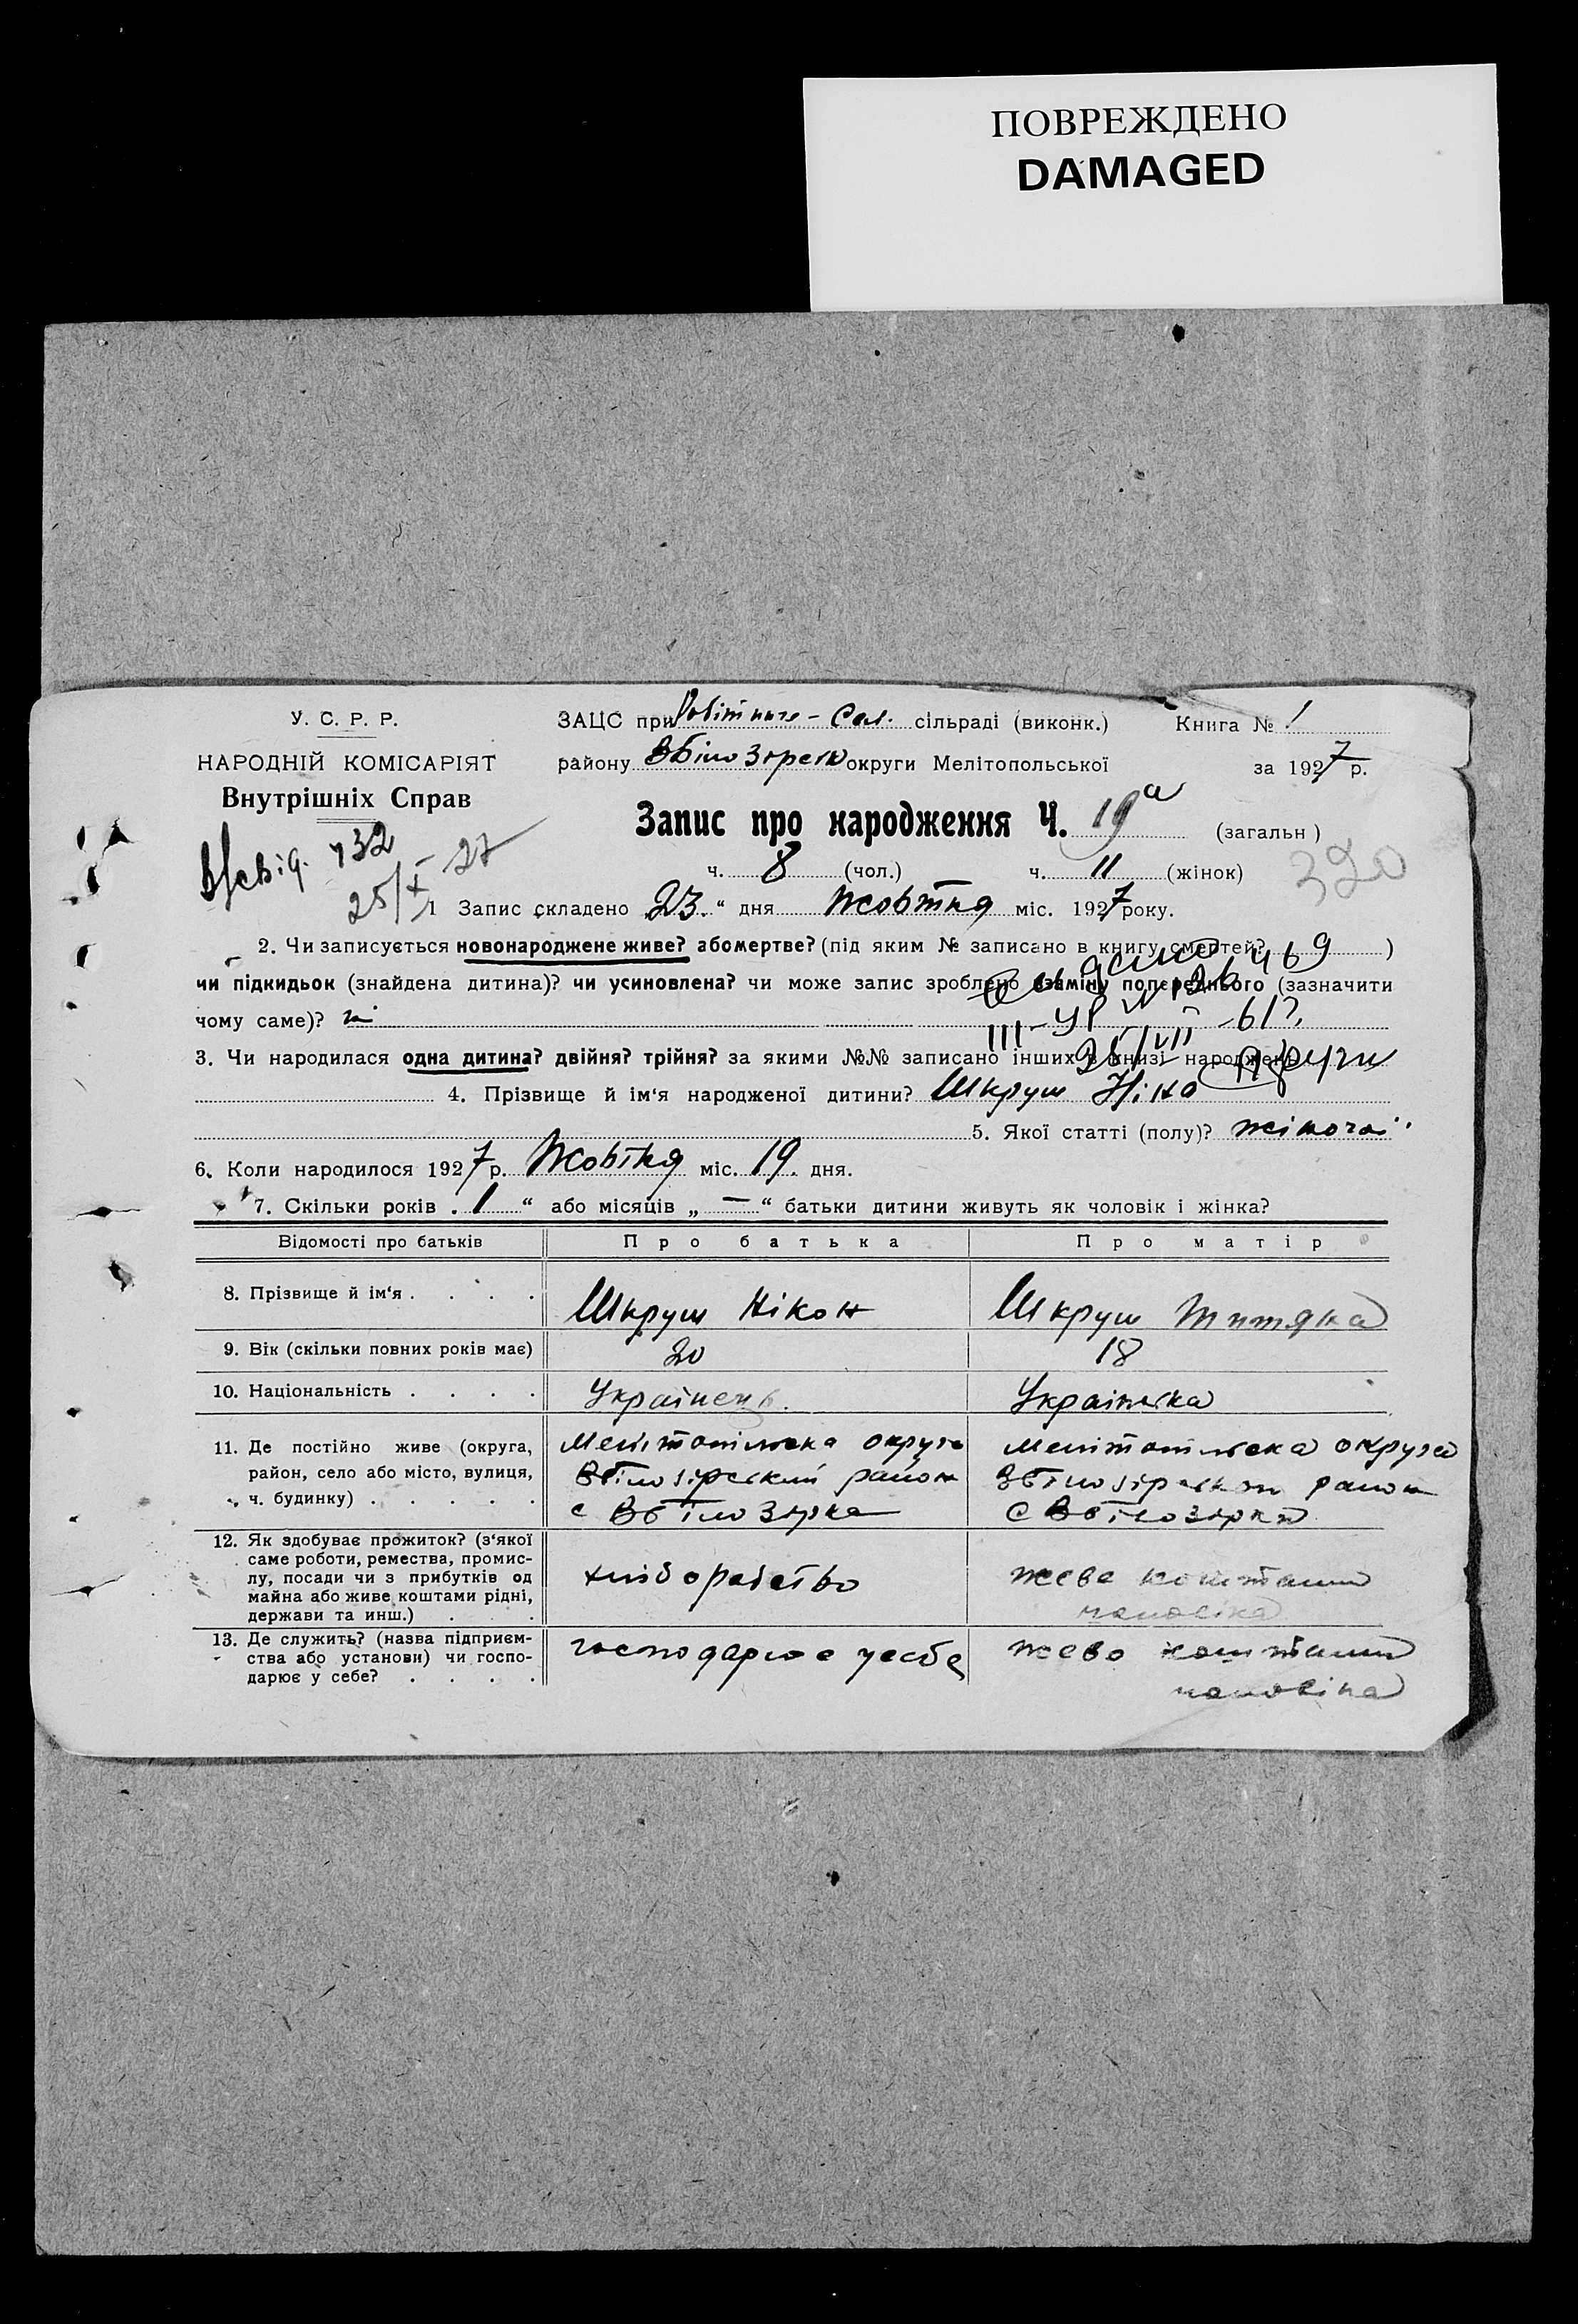 ПОВРЕЖДЕНО
DAMAGED
У. С. Р. Р.
НАРОДНІЙ КОМІСАРІЯТ
Внутрішніх Справ
732
25/X 27
ЗАЦС при сільраді (виконк.) Книга № 1
району округи Мелітопольської за 1927 р.
Запис про народження Ч. 19а (загальн)
ч. 8 (чол.) ч. 11 (жінок)
320
1 Запис складено 23 " дня Жовтня міс. 1927 року.
2. Чи записується новонароджене живе? або мертве? (під яким № записано в книгу смертей? )
чи підкидьок (знайдена дитина)? чи усиновлена? чи може запис зроблено взаміну попереднього (зазначити
чому саме)? ні
III-УР №
3. Чи народилася одна дитина? двійня? трійня? за якими №№ записано інших в книзі народжень
4. Прізвище й ім'я народженої дитини? Шкруш Ніна
5. Якої статті (полу)? жіночої
6. Коли народилося 1927 р. Жовтня міс. 19 дня.
7. Скільки років 1 " або місяців „ — " батьки дитини живуть як чоловік і жінка?
Відомості про батьків Про батька Про матір
8. Прізвище й ім'я . . . . Шкруш Нікон Шкруш Титяна
9. Вік (скільки повних років має) 20 18
10. Національність . . . . Українець Українька
11. Де постійно живе (округа, Мелітопільска округа Мелітопільска округа
район, село або місто, вулиця, Вбілозірський район Вбілозірський район
ч. будинку) . . . . . с Вбілозірка с Вбілозірка
12. Як здобуває прожиток? (з'якої
саме роботи, ремества, промис-
лу, посади чи з прибутків од хліборобство жеве коштами
майна або живе коштами рідні, чоловіка
держави та инш.) . .
13. Де служить? (назва підприєм- господарює усебе жево коштами
ства або установи) чи госпо-
дарює у себе? . . . . чоловіка